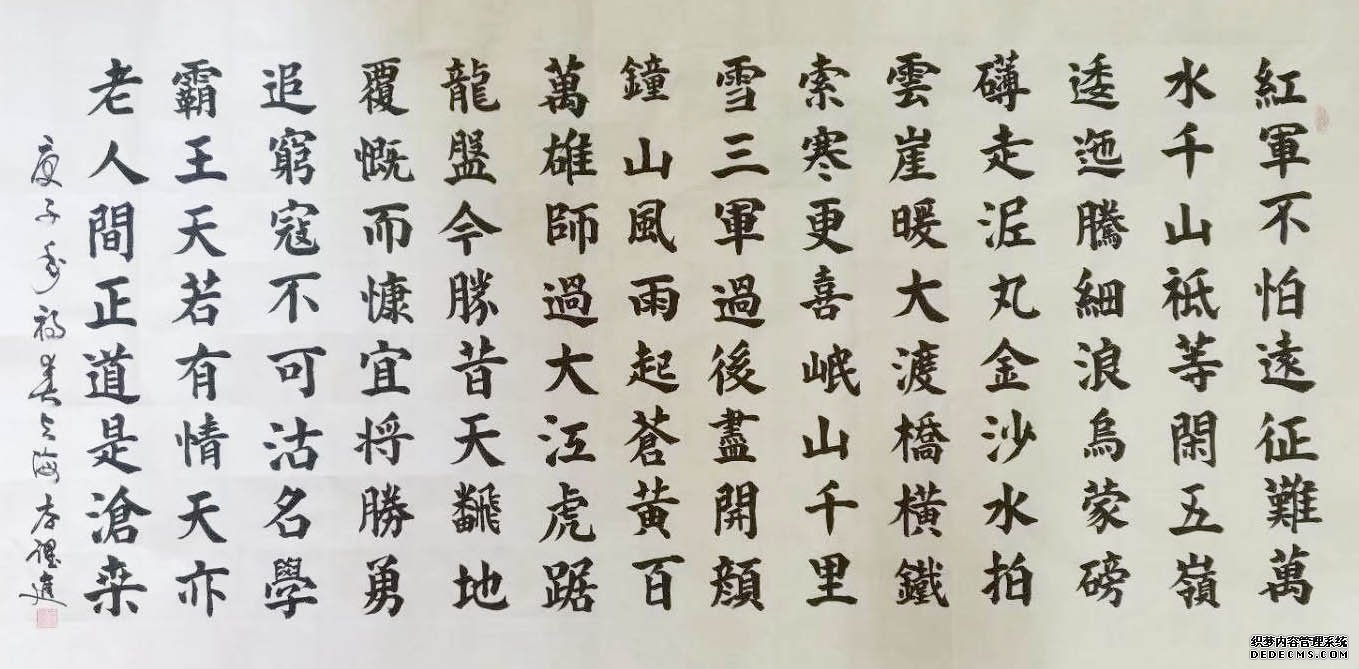 紅軍不怕遠征難萬
水千山祗等閑五嶺
逶迤騰細浪烏蒙磅
礴走泥丸金沙水拍
雲崖暖大渡橋橫鐵
索寒更喜岷山千里
雪三軍過後盡開顔
鐘山風雨起蒼黃百
萬雄師過大江虎踞
龍盤今勝昔天飜地
覆慨而慷宜将勝勇
追窮寇不可沽名學
霸王天若有情天亦
老人間正道是滄桒
庚子
织梦内容管理系统
DEDECMS.COM